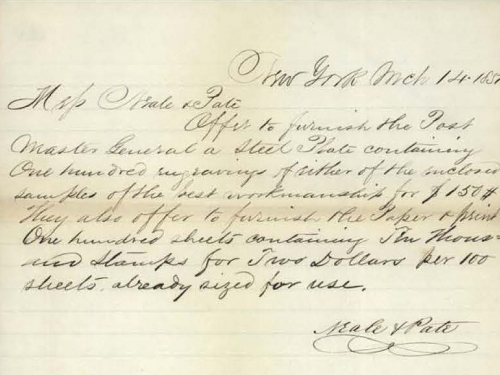 New York Mch 14. 185
Mess Neale & Pate
Offer to furnish the Post
Master General a Steel Plate containing
One hundred engravings of either of the enclosed
samples of the best workmanship for $150#
They also offer to furnish the Paper & print
One hundred sheets containing Ten Thous-
and Stamps for Two Dollars per 100
sheets. already sized for use.
Neale & Pate